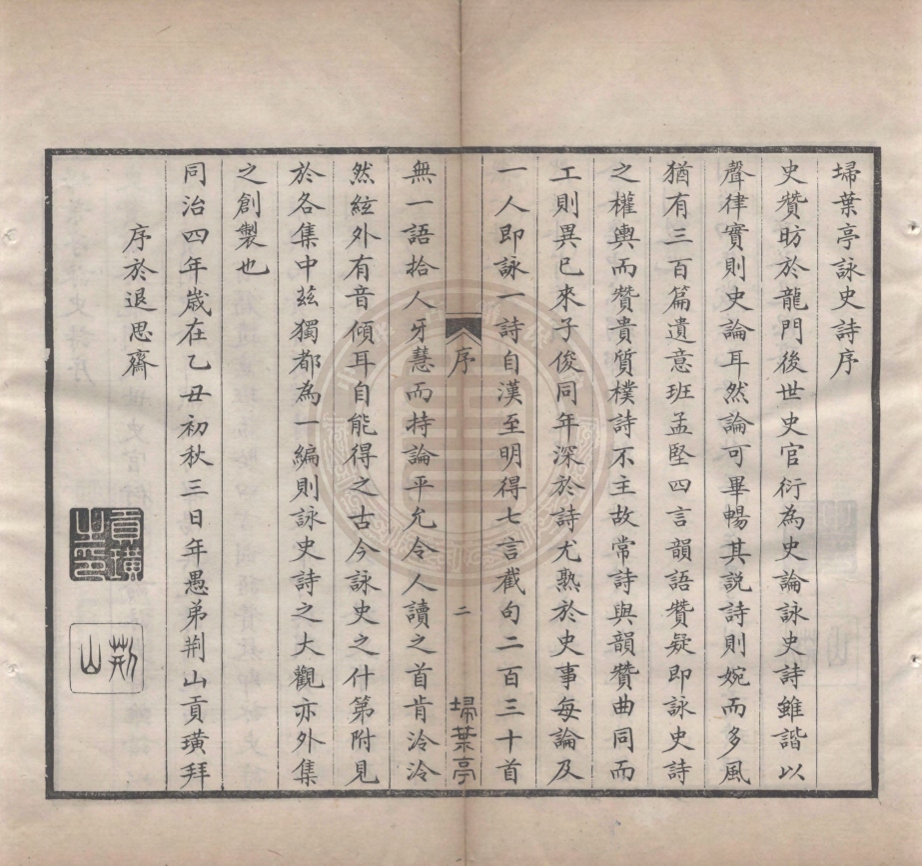 埽葉亭詠史詩序
史贊昉於龍門後世史官衍為史論詠史詩雖諧以
聲律實則史論耳然論可畢暢其説詩則婉而多風
猶有三百篇遺意班孟堅四言韻語贊疑即詠史詩
之權輿而贊貴質樸詩不主故常詩與韻贊曲同而
工則異已來子俊同年深於詩尤熟於史事每論及
一人即詠一詩自漢至明得七言截句二百三十首
序
二
埽葉亭
無一語拾人牙慧而持論平允令人讀之首肯泠泠
然絃外有音傾耳自能得之古今詠史之什第附見
於各集中茲獨都為一編則詠史詩之大觀亦外集
之創製也
同治四年歲在乙丑初秋三日年愚弟荆山貢璜拜
序於退思齋
貢璜之印
荆山